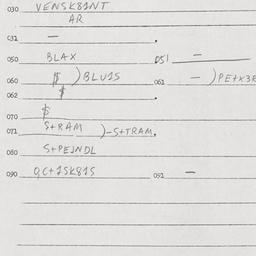 030 VENSK81NT
AR
031 —
050 BLAX 051 —
060 $ ) BLU1S 061 — ) PE+X3E
062 $
070 $
071 S+RAM )-S+TRAM.
080 S+PEJNDL
090 QC+1SK81S 091 —